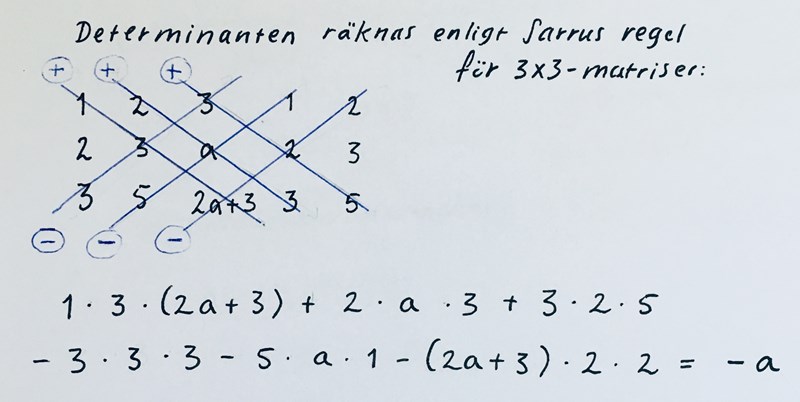 Determinanten räknas enligt Sarrus regel
för 3x3-matriser:
+ + +
1 2 3 1 2
2 3 a 2 3
3 5 2a+3 3 5
- - -
1 · 3 · (2a+3) + 2 · a · 3 + 3 · 2 · 5
- 3 · 3 · 3 - 5 · a · 1 - (2a+3) · 2 · 2 = -a